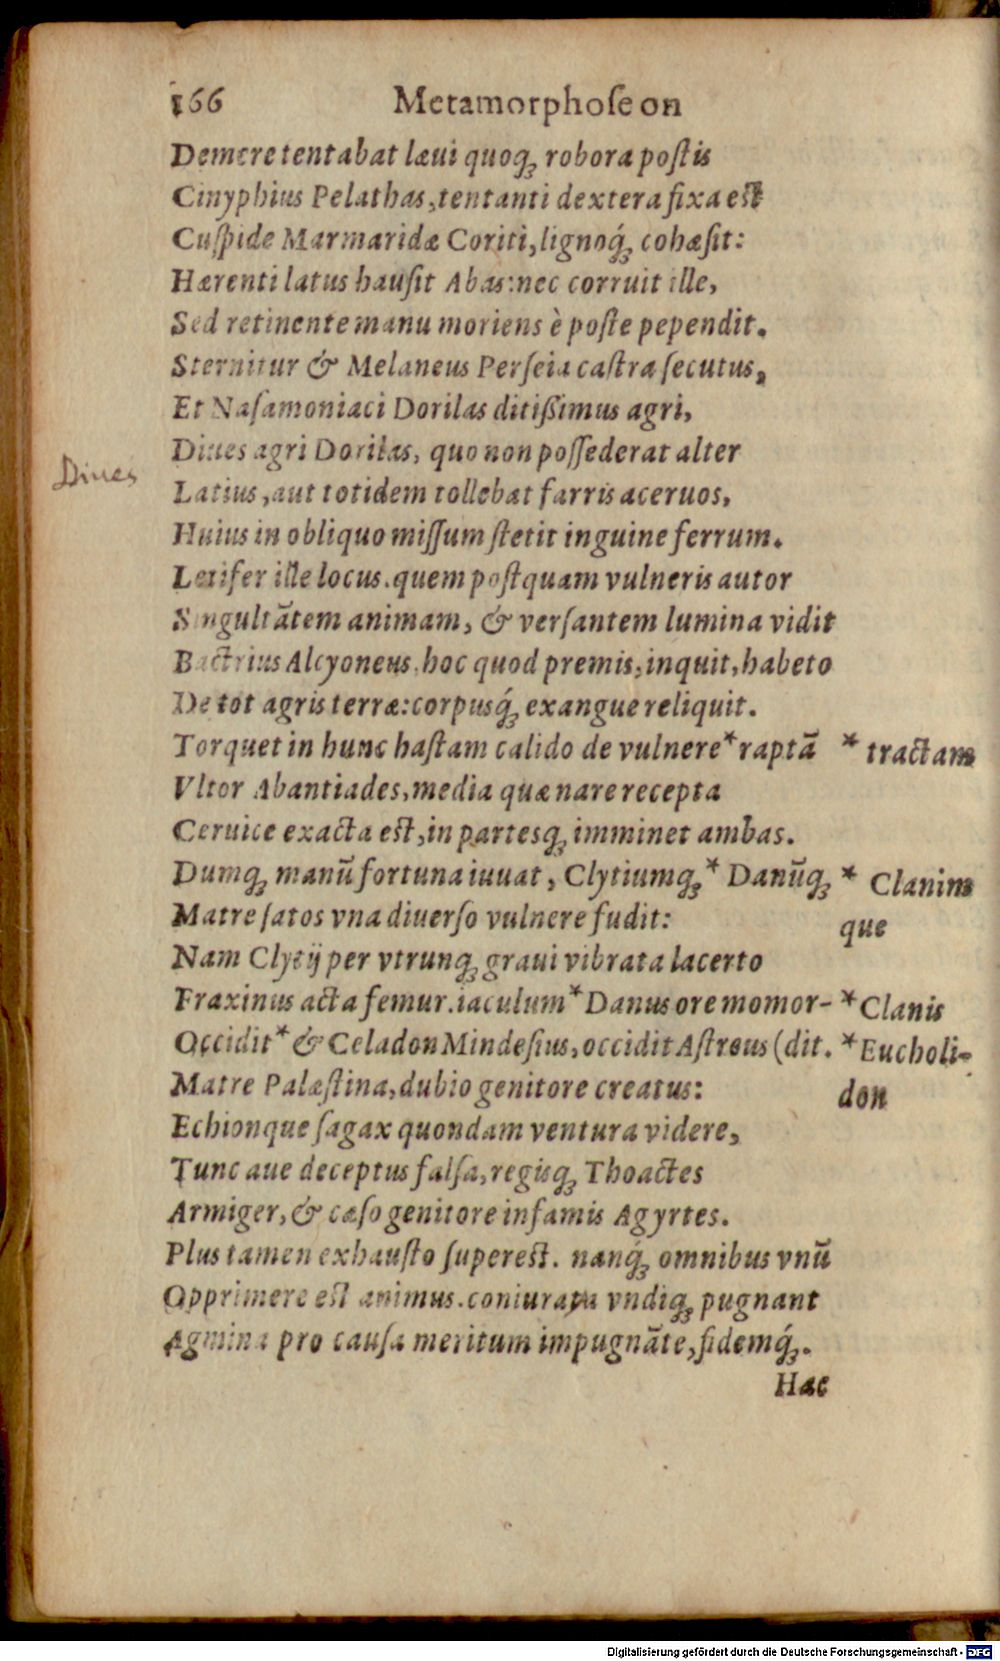 166 Metamorphoſeon
Demere tentabat læui quoqꝫ robora poſtis
Cinyphius Pelathas, tentanti dextera fixa est
Cuſpide Marmaridæ Coriti, lignoq́ꝫ cohæſit:
Hærenti latus hauſit Abas: nec corruit ille,
Sed retinente manu moriens è poſte pependit.
Sternitur & Melaneus Perſeia caſtra ſecutus,
Et Naſamoniaci Dorilas ditißimus agri,
Diues agri Dorilas, quo non poſſederat alter
Diues
Latius, aut totidem tollebat farris aceruos,
Huius in obliquo miſſum ſtetit inguine ferrum.
Letifer ille locus. quem poſtquam vulneris autor
Singultãtem animam, & verſantem lumina vidit
Bactrius Alcyoneus, hoc quod premis, inquit, habeto
De tot agris terræ: corpusq́ꝫ exangue reliquit.
Torquet in hunc haſtam calido de vulnere * raptã * tractam
Vltor Abantiades, media quæ nare recepta
Ceruice exacta est, in partesqꝫ imminet ambas.
Dumqꝫ manũ fortuna iuuat, Clytiumqꝫ * Danũqꝫ * Clanim
Matre ſatos vna diuerſo vulnere fudit: que
Nam Clytij per vtrunqꝫ graui vibrata lacerto
Fraxinus acta femur. iaculum * Danus ore momor- * Clanis
Occidit * & Celadon Mindeſius, occidit Aſtreus (dit. * Eucholi-
Matre Palæſtina, dubio genitore creatus: don
Echionque ſagax quondam ventura videre,
Tunc aue deceptus falſa, regisqꝫ Thoactes
Armiger, & cæſo genitore infamis Agyrtes.
Plus tamen exhauſto ſuperest. nanq́ꝫ omnibus vnũ
Opprimere est animus. coniurata vndiqꝫ pugnant
Agmina pro cauſa meritum impugnãte, fidemq́ꝫ.
Hæc
Digitalisierung gefördert durch die Deutsche Forschungsgemeinschaft - DFG